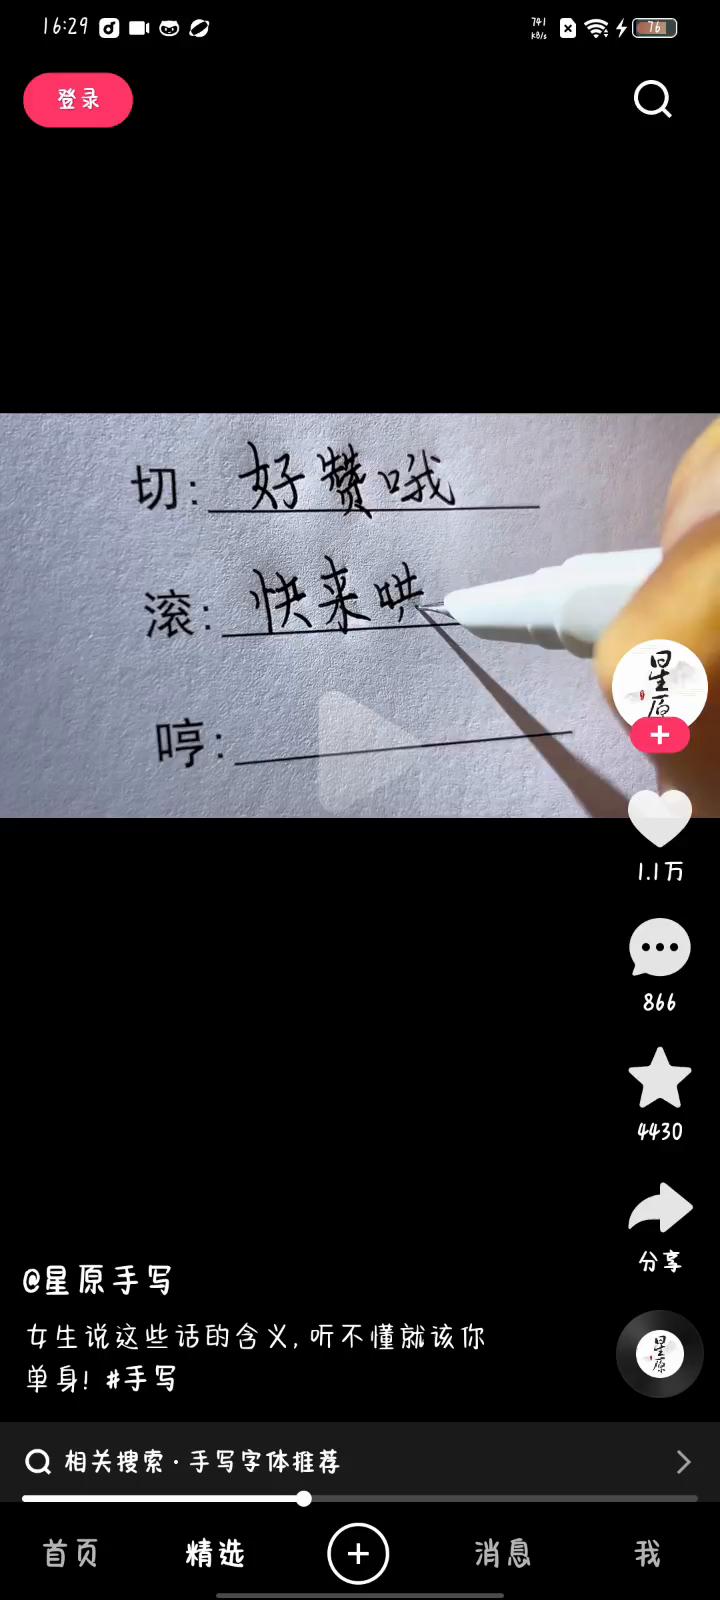 16:29
741
KB/s
76
登录
切: 好赞哦
滚: 快来哄
哼:
星原
1.1万
866
4430
分享
@星原手写
女生说这些话的含义, 听不懂就该你
单身! #手写
星原
相关搜索 · 手写字体推荐
首页 精选 消息 我